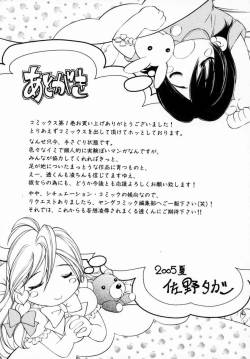 あとがき
コミックス第1巻お買い上げありがとうございました!
とりあえずコミックスを出して頂けてホッとしております。
なんせ只今、手さぐり状態。
色々なイミで個人的に実験ぽいマンガなんですが、
みんなが協力してくれればきっと、
足が地についたまっとうな作品に育つものと、
えー、透くんも凌ちゃんも信じてますんで、
彼女らの為にも、どうか今後とも応援よろしくお願いします!
やや、シチュエーション・コミックの傾向なので、
リクエストありましたら、ヤングコミック編集部へご一報下さい(笑)!
それでは、これからも妄想凌辱されまくる透くんにご期待下さい!!
2005夏
佐野タカ